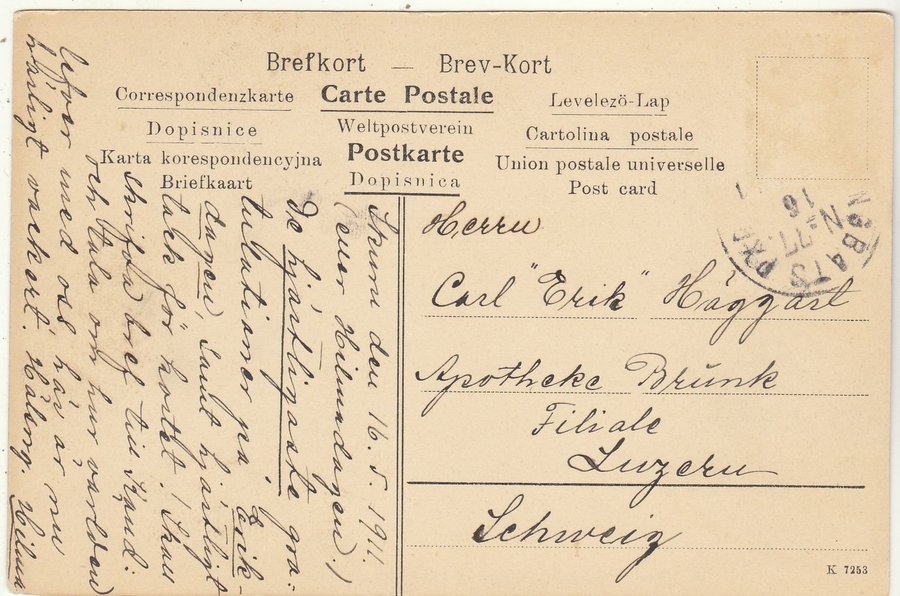 Brefkort — Brev-Kort
Correspondenzkarte Carte Postale Levelezö-Lap
Dopisnice Weltpostverein Cartolina postale
Karta korespondencyjna Postkarte Union postale universelle
Briefkaart Dopisnica Post card
den 16.5.1911.
(eller Hilmadagen!)
De hjärtligaste gra-
tulationer på Erik-
dagen, samt hjärtligt
tack för kortet! Skall
skrifva bref till
och tala om hur världen
med oss här är nu
vackert. Hälsng. Hilma
Herrn
Carl "Erik" Häggart
Apotheke Brunk
Filiale
Luzern
Schweiz
K 7253
N:77.
16